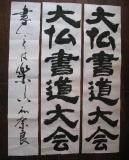 大仏書道大会
大仏書道大会
書
楽
奈良